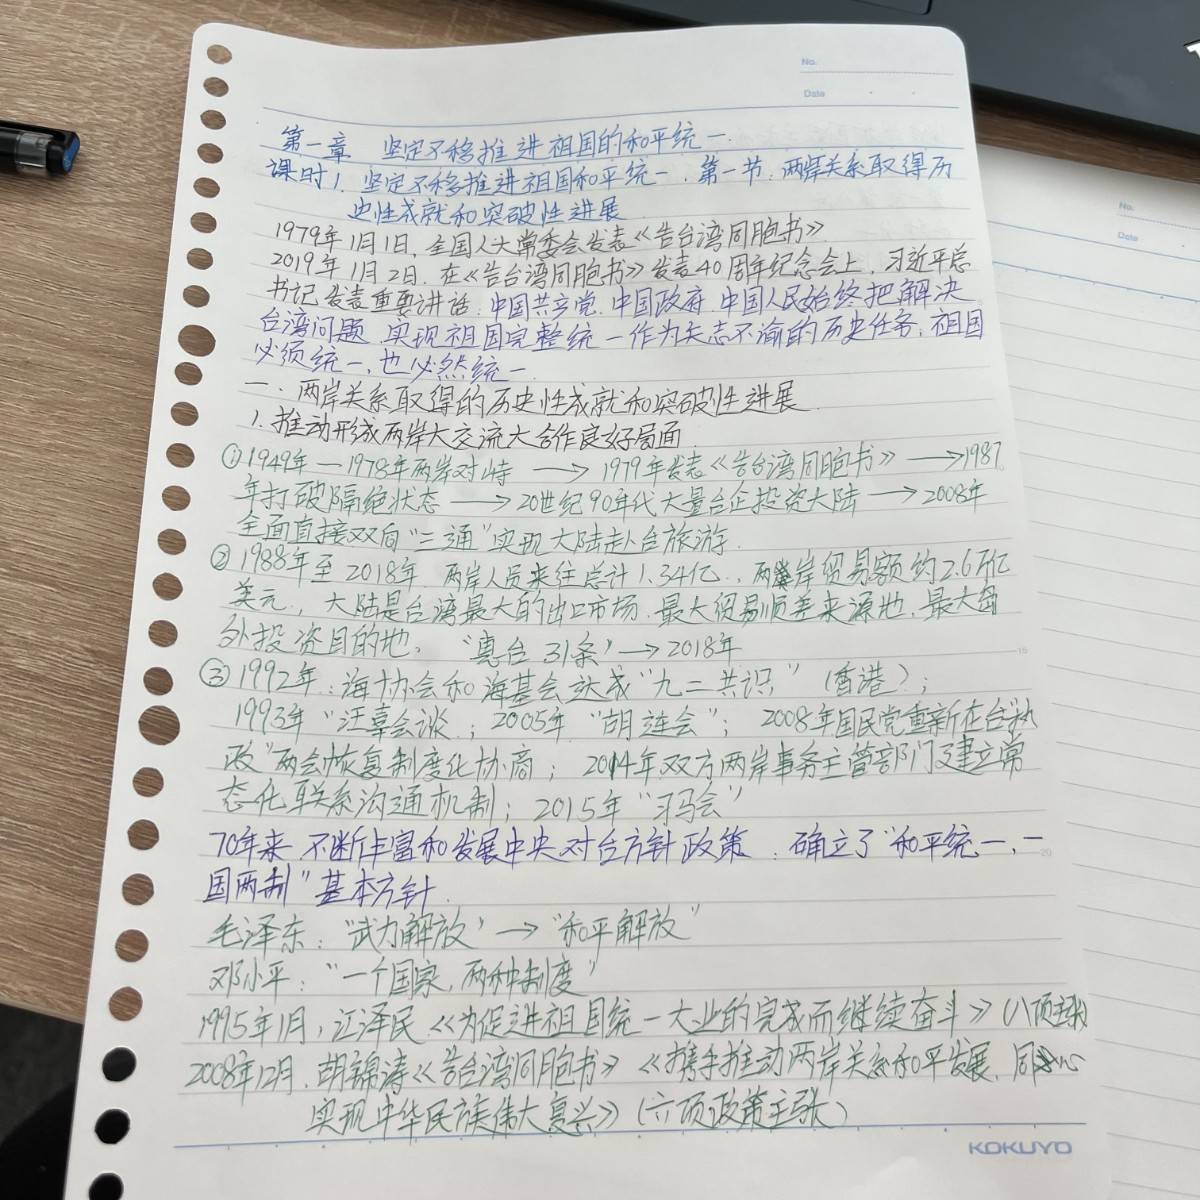 No.
Date
第一章 坚定不移推进祖国的和平统一.
课时1. 坚定不移推进祖国和平统一. 第一节. 两岸关系取得历
史性成就和突破性进展
1979年1月1日, 全国人大常委会发表《告台湾同胞书》
2019年1月2日, 在《告台湾同胞书》发表40周年纪念会上, 习近平总
书记发表重要讲话: 中国共产党. 中国政府. 中国人民始终把解决
台湾问题, 实现祖国完整统一作为矢志不渝的历史任务, 祖国
必须统一, 也必然统一.
一. 两岸关系取得的历史性成就和突破性进展.
1. 推动形成两岸大交流大合作良好局面.
①1949年—1978年两岸对峙 → 1979年发表《告台湾同胞书》 → 1987
年打破隔绝状态 → 20世纪90年代大量台企投资大陆 → 2008年
全面直接双向“三通”实现大陆赴台旅游.
②1988年至2018年. 两岸人员来往总计1.34亿.. 两岸贸易额约2.6万亿
美元., 大陆是台湾最大的出口市场. 最大贸易顺差来源地, 最大岛
外投资目的地. “惠台31条” → 2018年
③1992年: 海协会和海基会达成“九二共识” (香港);
1993年“汪辜会谈; 2005年“胡连会”; 2008年国民党重新在台执
政”两会恢复制度化协商; 2014年双方两岸事务主管部门建立常
态化联系沟通机制; 2015年“习马会”
70年来, 不断丰富和发展中央对台方针政策: 确立了“和平统一, 一
国两制”基本方针.
毛泽东: “武力解放” → “和平解放”
邓小平: “一个国家, 两种制度”
1995年1月, 江泽民《为促进祖国统一大业的完成而继续奋斗》(八项主张
2008年12月. 胡锦涛《告台湾同胞书》《携手推动两岸关系和平发展, 同心
实现中华民族伟大复兴》(六项政策主张)
KOKUYO
No.
Date
15
20